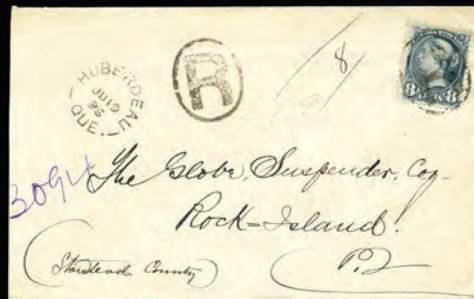 HUBERDEAU
JU 19
96
QUE.
R
8
9
8 8
3094
The Globe, Suspender, Coy-
Rock=Island!
(Stanstead County)
P.Q